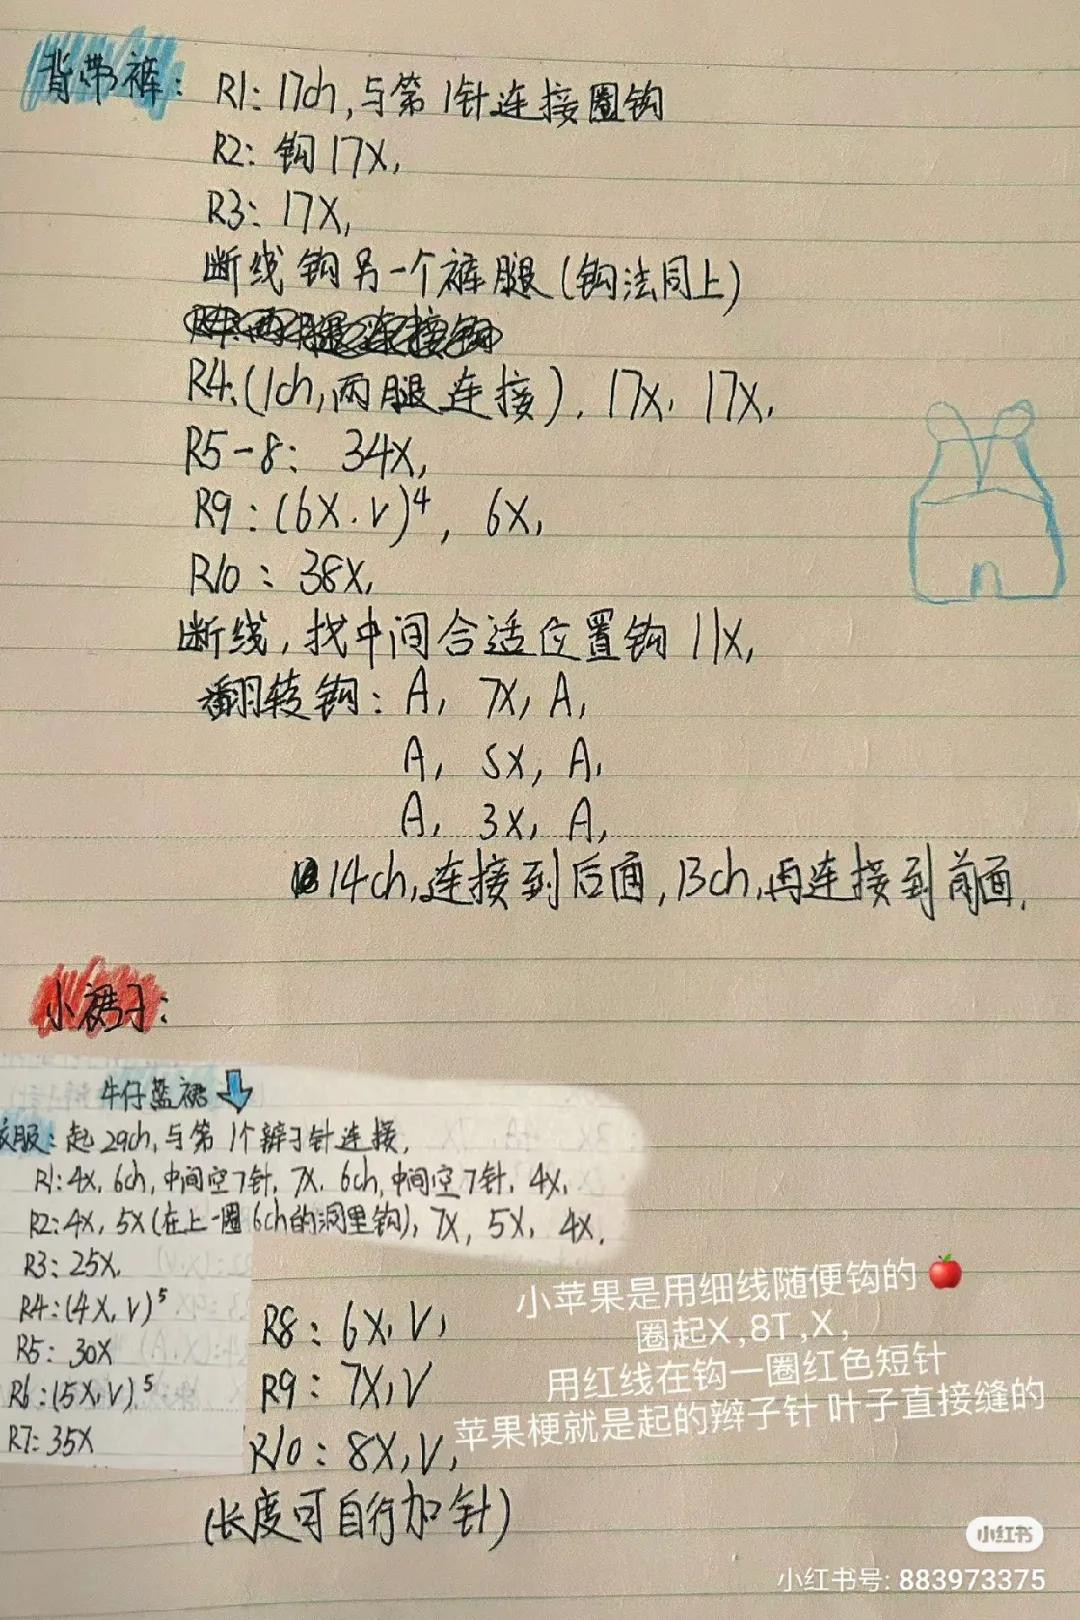 背带裤: R1: 17ch, 与第1针连接圈钩
R2: 钩17X,
R3: 17X,
断线 钩另一个裤腿(钩法同上)
R4:(1ch, 两腿连接), 17X, 17X,
R5-8: 34X,
R9: (6X.V)⁴, 6X,
R10: 38X,
断线, 找中间合适位置钩11X,
翻转钩: A, 7X, A,
A, 5X, A,
A, 3X, A,
14ch, 连接到后面, 13ch, 再连接到前面.
小裙子:
牛仔蓝裙
衣服: 起29ch, 与第1个辫子针连接,
R1: 4X, 6ch, 中间空7针, 7X, 6ch, 中间空7针, 4X,
R2: 4X, 5X(在上一圈6ch的洞里钩), 7X, 5X, 4X,
R3: 25X,
R4: (4X, V)⁵
R5: 30X
R6: (5X, V)⁵
R7: 35X
R8: 6X, V,
R9: 7X, V
R10: 8X, V,
(长度可自行加针)
小苹果是用细线随便钩的🍎
圈起X,8T,X,
用红线在钩一圈红色短针
苹果梗就是起的辫子针 叶子直接缝的
小红书
小红书号: 883973375